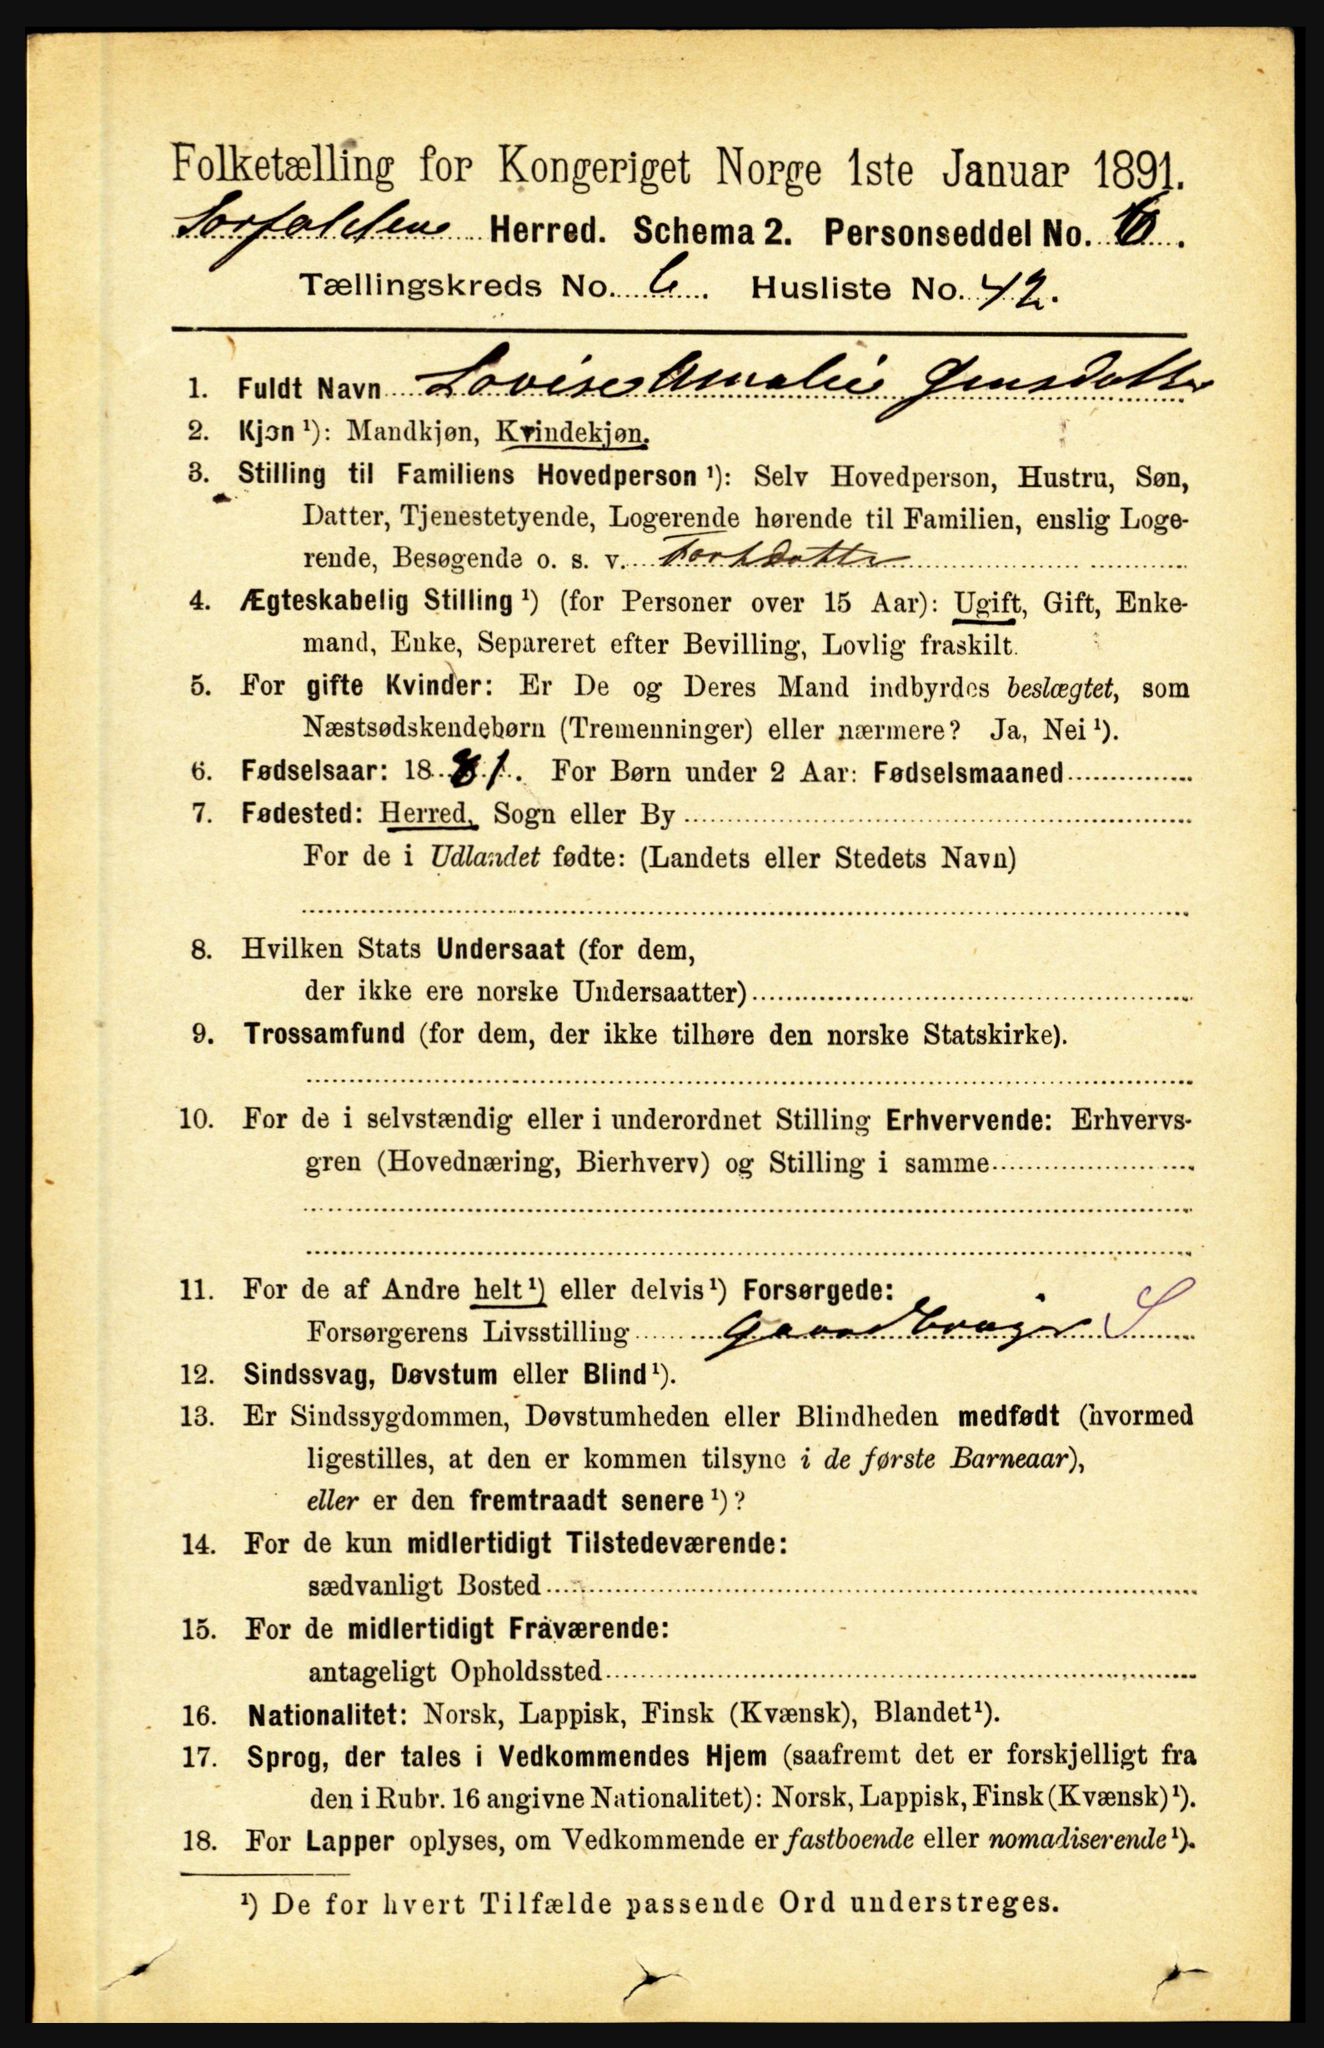 Folketælling for Kongeriget Norge 1ste Januar 1891.
Sorfolden Herred. Schema 2. Personseddel No. 6.
Tællingskreds No. 6. Husliste No. 42.
1. Fuldt Navn Lovise Amalie Jensdatter
2. Kjøn ¹): Mandkjøn, Kvindekjøn.
3. Stilling til Familiens Hovedperson ¹): Selv Hovedperson, Hustru, Søn,
Datter, Tjenestetyende, Logerende hørende til Familien, enslig Loge-
rende, Besøgende o. s. v.
4. Ægteskabelig Stilling ¹) (for Personer over 15 Aar): Ugift, Gift, Enke-
mand, Enke, Separeret efter Bevilling, Lovlig fraskilt.
5. For gifte Kvinder: Er De og Deres Mand indbyrdes beslægtet, som
Næstsødskendebørn (Tremenninger) eller nærmere? Ja, Nei ¹).
6. Fødselsaar: 1881. For Børn under 2 Aar: Fødselsmaaned
7. Fødested: Herred, Sogn eller By
For de i Udlandet fødte: (Landets eller Stedets Navn)
8. Hvilken Stats Undersaat (for dem,
der ikke ere norske Undersaatter)
9. Trossamfund (for dem, der ikke tilhøre den norske Statskirke).
10. For de i selvstændig eller i underordnet Stilling Erhvervende: Erhvervs-
gren (Hovednæring, Bierhverv) og Stilling i samme
11. For de af Andre helt ¹) eller delvis ¹) Forsørgede:
Forsørgerens Livsstilling Gaardbruger S
12. Sindssvag, Døvstum eller Blind ¹).
13. Er Sindssygdommen, Døvstumheden eller Blindheden medfødt (hvormed
ligestilles, at den er kommen tilsyne i de første Barneaar),
eller er den fremtraadt senere ¹)?
14. For de kun midlertidigt Tilstedeværende:
sædvanligt Bosted
15. For de midlertidigt Fraværende:
antageligt Opholdssted
16. Nationalitet: Norsk, Lappisk, Finsk (Kvænsk), Blandet ¹).
17. Sprog, der tales i Vedkommendes Hjem (saafremt det er forskjelligt fra
den i Rubr. 16 angivne Nationalitet): Norsk, Lappisk, Finsk (Kvænsk) ¹).
18. For Lapper oplyses, om Vedkommende er fastboende eller nomadiserende ¹).
¹) De for hvert Tilfælde passende Ord understreges.